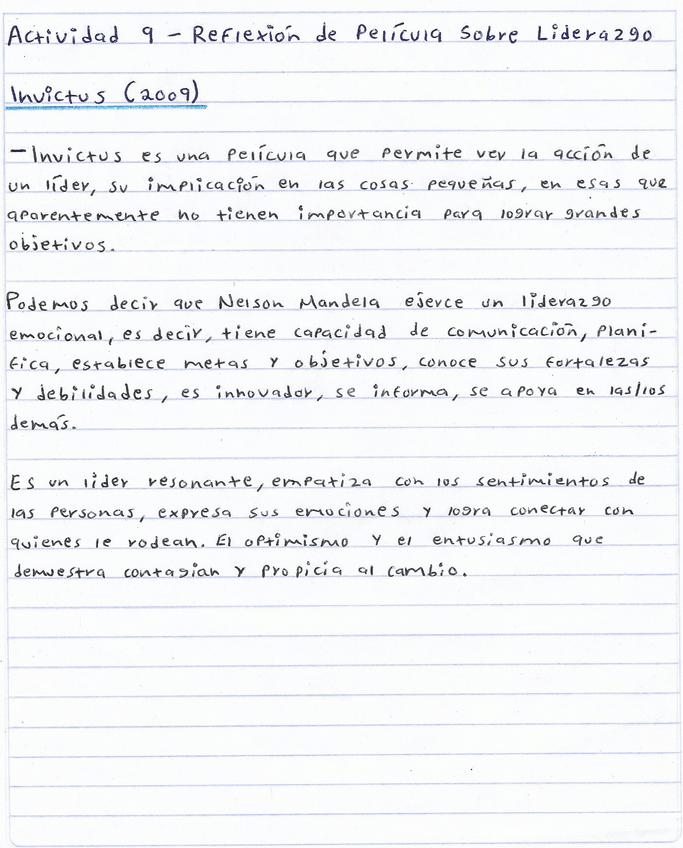 Actividad 9 - Reflexión de Película Sobre Liderazgo
Invictus (2009)
-Invictus es una película que permite ver la acción de
un líder, su implicación en las cosas pequeñas, en esas que
aparentemente no tienen importancia para lograr grandes
objetivos.
Podemos decir que Nelson Mandela ejerce un liderazgo
emocional, es decir, tiene capacidad de comunicación, plani-
fica, establece metas y objetivos, conoce sus fortalezas
y debilidades, es innovador, se informa, se apoya en las/los
demás.
Es un líder resonante, empatiza con los sentimientos de
las personas, expresa sus emociones y logra conectar con
quienes le rodean. El optimismo y el entusiasmo que
demuestra contagian y propicia al cambio.